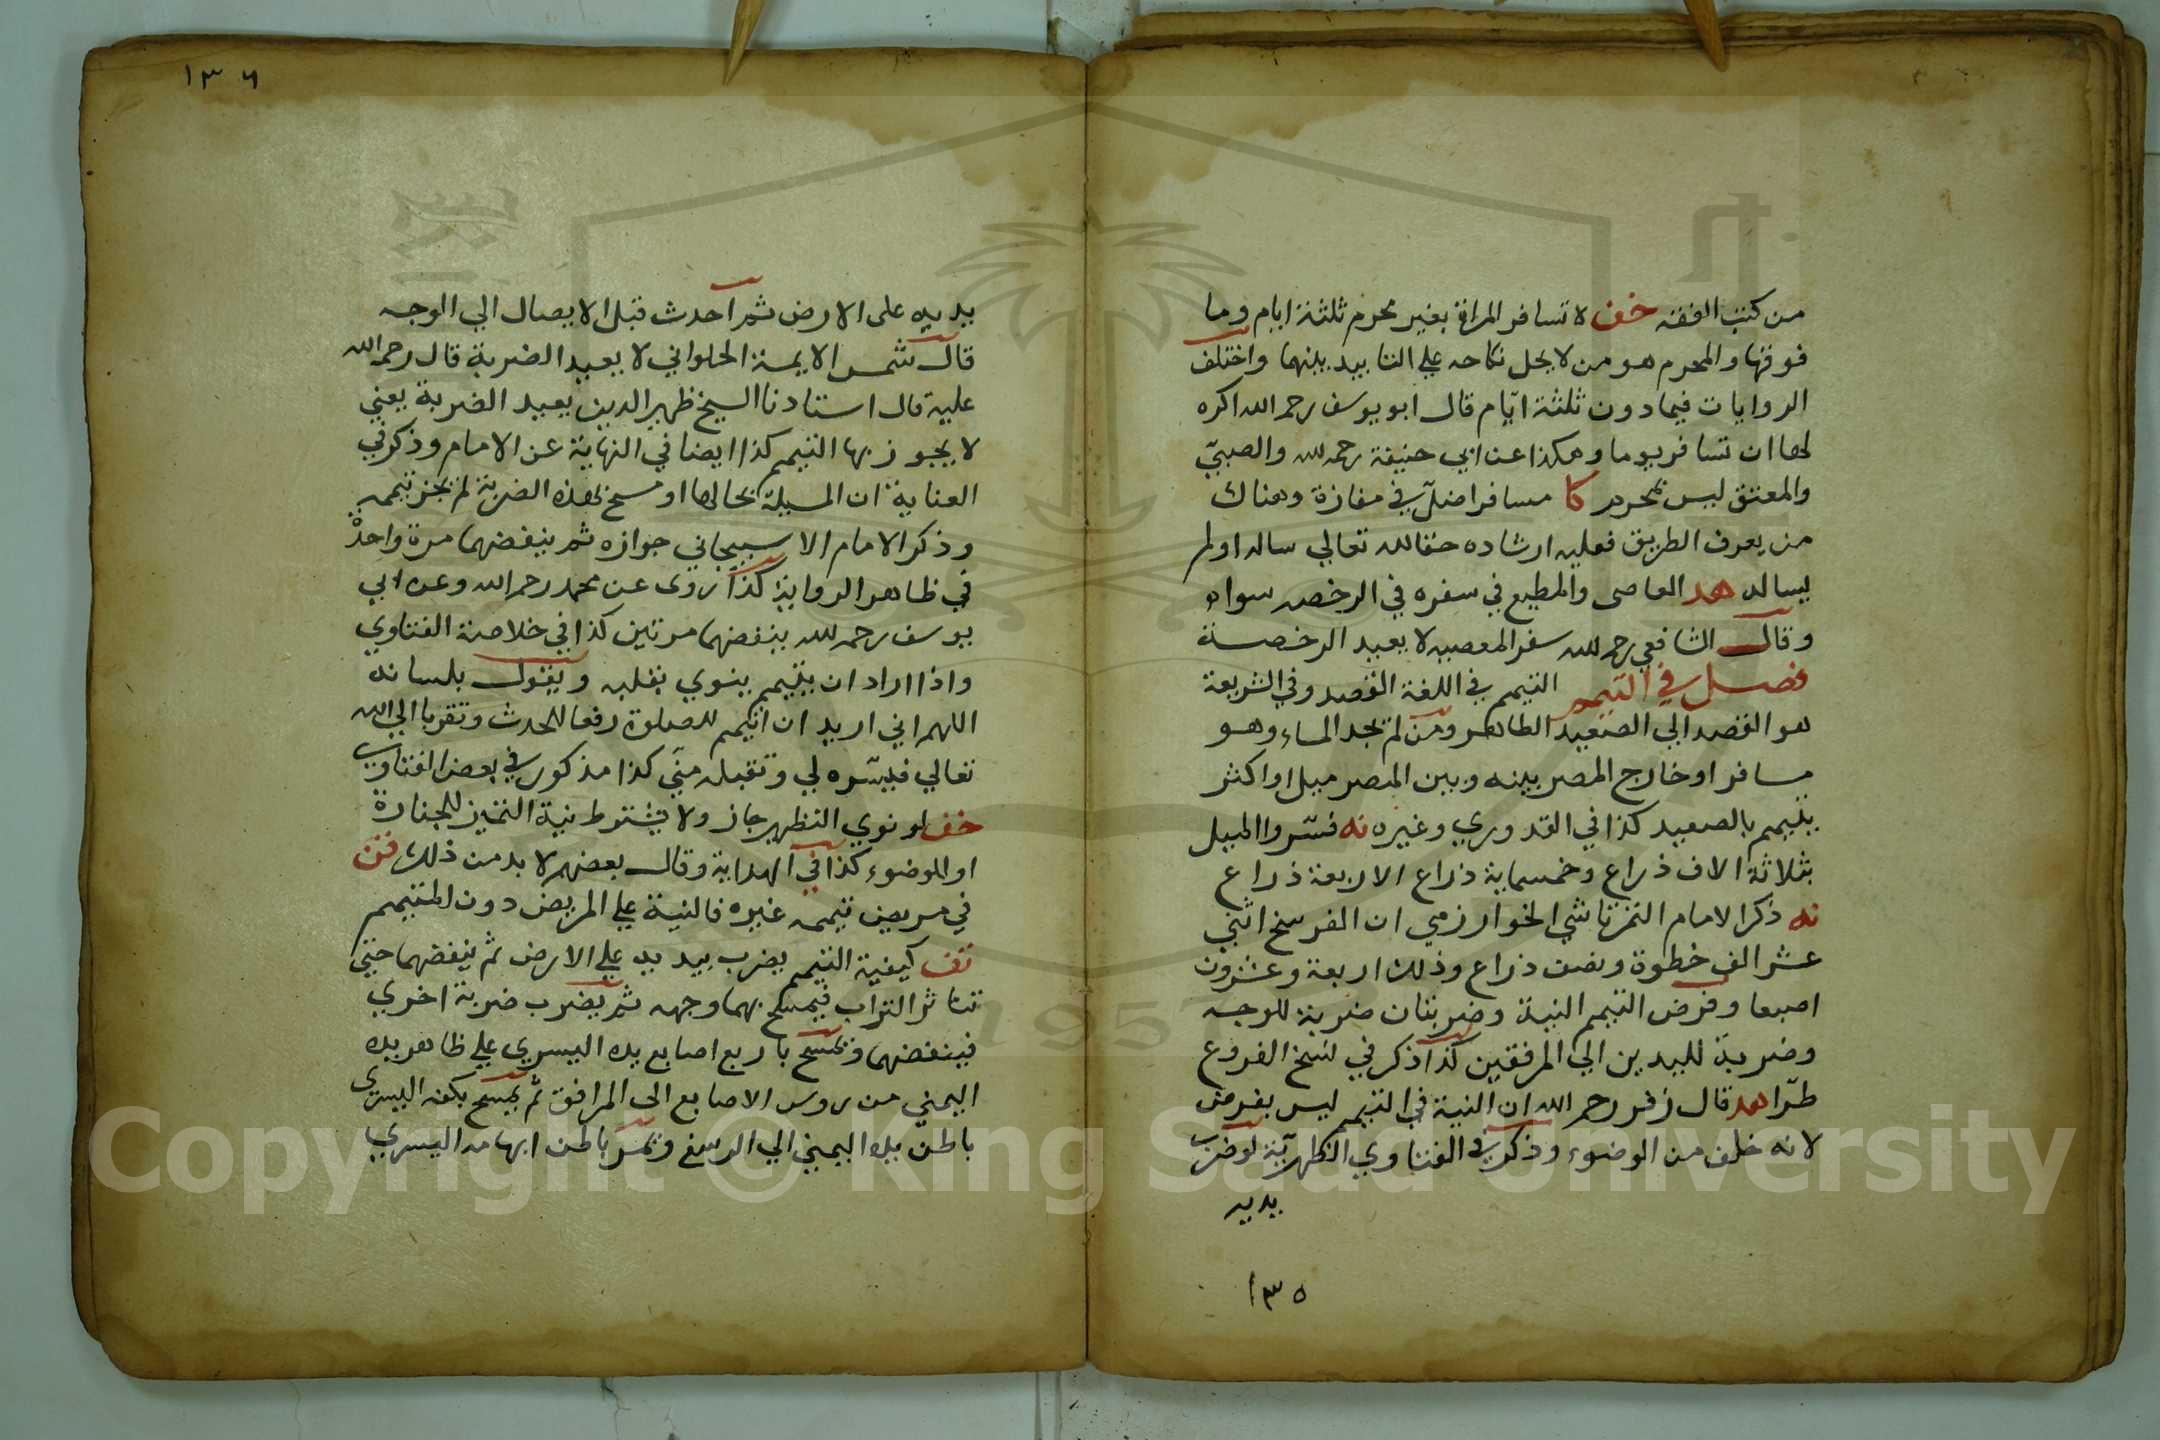 من كتب الفقه خف لا تسافر المراة بغير محرم ثلثة ايام وما
فوقها والمحرم هو من لا يحل نكاحه علي التابيد بينهما واختلف
الروايات فيما دون ثلثة ايّام قال ابو يوسف رحمه الله اكره
لها ان تسافر يوما وهكذا عن ابي حنيفة رحمه لله والصبيّ
والمعتق ليس بمحرم كا مسافر اضلّ في مفازة وهناك
من يعرف الطريق فعليه ارشاده حقا لله تعالي ساله او لم
يساله هد العاصى والمطيع في سفره في الرخصه سواء
وقال الشافعي رحمه لله سفر المعصيه لا يعيد الرخصة
فصل في التيمم التيمم في اللغة القصد وفي الشريعة
هو القصد الي الصعيد الطاهر ومن لم يجد الماء وهو
مسافر او خارج المصر بينه وبين المصر ميل او اكثر
يتيمم بالصعيد كذا في القدوري وغيره نه فسّروا الميل
بثلاثة الاف ذراع وخمسماية ذراع الا ربعة ذراع
نه ذكر الامام التمرتاشي الخوارزمي ان الفرسخ اثني
عشر الف خطوة ونصف ذراع وذلك اربعة وعشرون
اصبعا وفرض التيمم النية وضربتان ضربة للوجه
وضربة لليدين الي المرفقين كذا ذكر في نسخ الفروع
طرّا هد قال زفر رحمه الله ان النية في التيمم ليس بفرض
لانه خلف من الوضوء وذكر في الفتاوي الظهريّة لو ضرب
يديه
١٣٥
١٣٦
بيديه على الارض ثم احدث قبل الايصال الي الوجه
قال شمس الايمة الحلواني لا يعيد الضربة قال رحمه الله
عليه قال استادنا الشيخ ظهير الدين يعيد الضربة يعني
لا يجوز بها التيمم كذا ايضا في النهاية عن الامام وذكر في
العناية ان المسيلة بحالها او مسح بهذه الضربة لم يجز تيممه
وذكر الامام الاسبيجاني جوازه ثم ينفضهما مرة واحدة
في ظاهر الرواية كذا روى عن محمد رحمه الله وعن ابي
يوسف رحمه لله ينفضهما مرتين كذا في خلاصة الفتاوي
واذا اراد ان يتيمم ينوي بقلبه ويقول بلسانه
اللهم اني اريد ان اتيمم للصلوة رفعا للحدث وتقربا الي الله
تعالي فيسّره لي وتقبله منّي كذا مذكور في بعض الفتاوي
خف لو نوي التطهير جاز ولا يشترط نية التميز للجنازة
او الوضوء كذا في الهداية وقال بعضهم لا بد من ذلك فتن
في مريض تيممه غيره فالنية علي المريض دون المتيمم
تف كيفية التيمم يضرب بيديه علي الارض ثم ينفضهما حتي
تتناثر التراب فيمسح بهما وجهه ثم يضرب ضربة اخري
فينفضهما ويمسح باربع اصابع يده اليسري علي ظاهر يده
اليمني من روس الاصابع الى المرافق ثم يمسح بكفه اليسري
باطن يده اليمني الي الرسغ ويمر باطن ابهامه اليسري
Copyright © King Saud University
1957